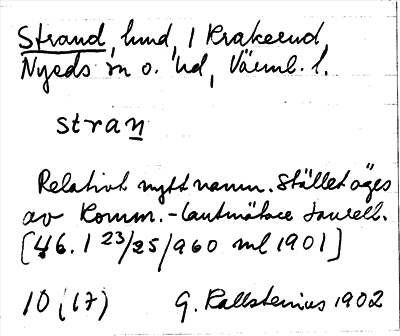 Strand, hmd, i Krakerud,
Nyeds sn o. hd, Värml. l.
stran
Relativt nytt namn. Stället äges
av Komm.-lantmätare Taurell.
[46. 1 23/25/960 ml 1901]
10 (17) G. Kallstenius 1902